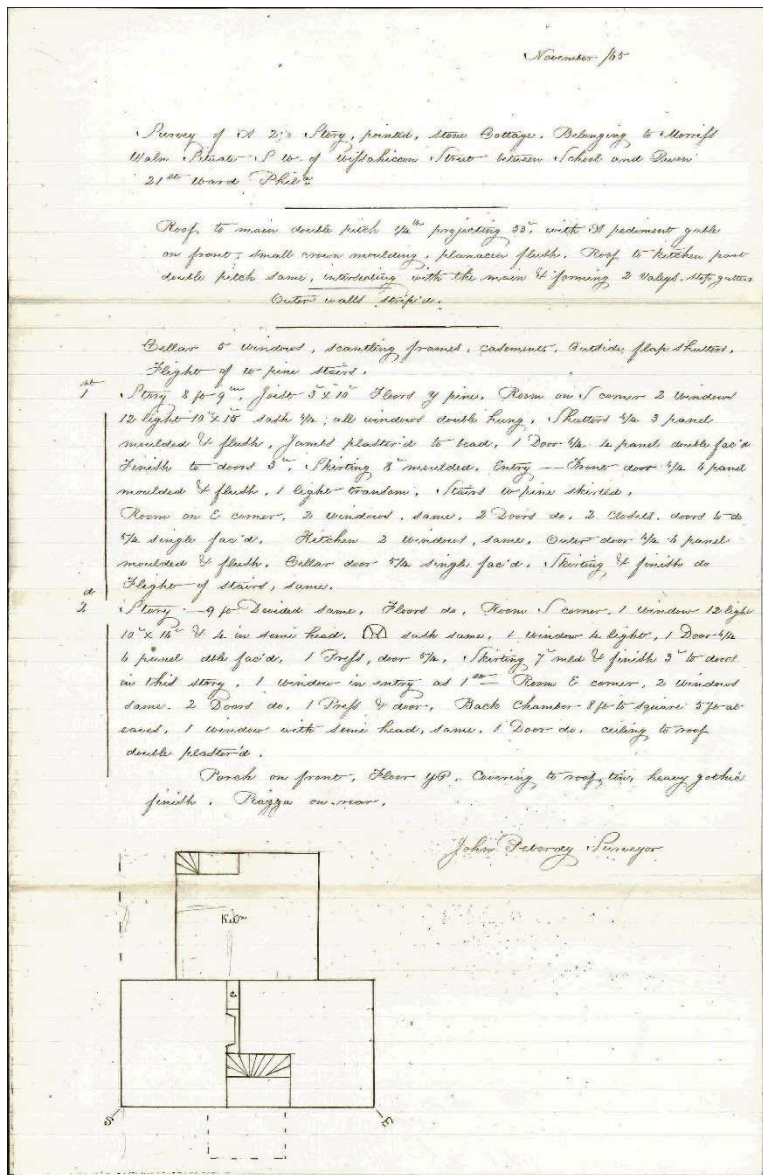 November /65
Survey of A 2 Story, pointed, stone Cottage. Belonging to Morriss
Waln Situate S W. of Wissahiccon Street between School and Queen
21st Ward Phila
Roof to main double pitch 1/4th projecting 33" with A pediment gable
on front, small crown moulding, planacia flush. Roof to kitchen part
double pitch same, intersecting with the main & forming 2 Valeys. stop gutters
Outer walls strip'd.
Cellar 5 windows, scantling frames, casements. Outside flap shutters.
Flight of w pine stairs.
1st Story 8 ft 9in. Joist 3" x 10" Floors y pine. Room on S corner 2 windows
12 light 10" x 15" sash 5/4, all windows double hung. Shutters 5/4 3 panel
moulded & flush. Jambs plaster'd to bead. 1 Door 5/4 4 panel double fac'd
Finish to doors 3". Skirting 8" moulded. Entry — Front door 5/4 6 panel
moulded & flush, 1 light transom. Stairs w pine skirted.
Room on E corner, 2 windows, same. 2 Doors do. 2 Closets, doors to do
5/4 single fac'd. Kitchen 2 windows, same. Outer door 5/4 6 panel
moulded & flush. Cellar door 5/4 single fac'd. Skirting & finish do
Flight of stairs, same.
2d Story — 9 ft Devided same. Floors do. Room S corner. 1 window 12 light
10" x 14" & 4 in semi head. sash same. 1 window 4 light, 1 Door 5/4
6 panel dble fac'd. 1 Press, door 5/4. Skirting 7" mld & finish 3" to doors
in this story. 1 window in entry as 1st — Room E corner, 2 windows
same. 2 Doors do. 1 Press & door. Back Chamber 8 ft to square 5 ft at
eaves. 1 window with semi head, same. 1 Door do. ceiling to roof
double plaster'd.
Porch on front. Floor y P. Covering to roof, tin, heavy gothic
finish. Piazza on rear.
John Surveyor
Kitn
c
S
E